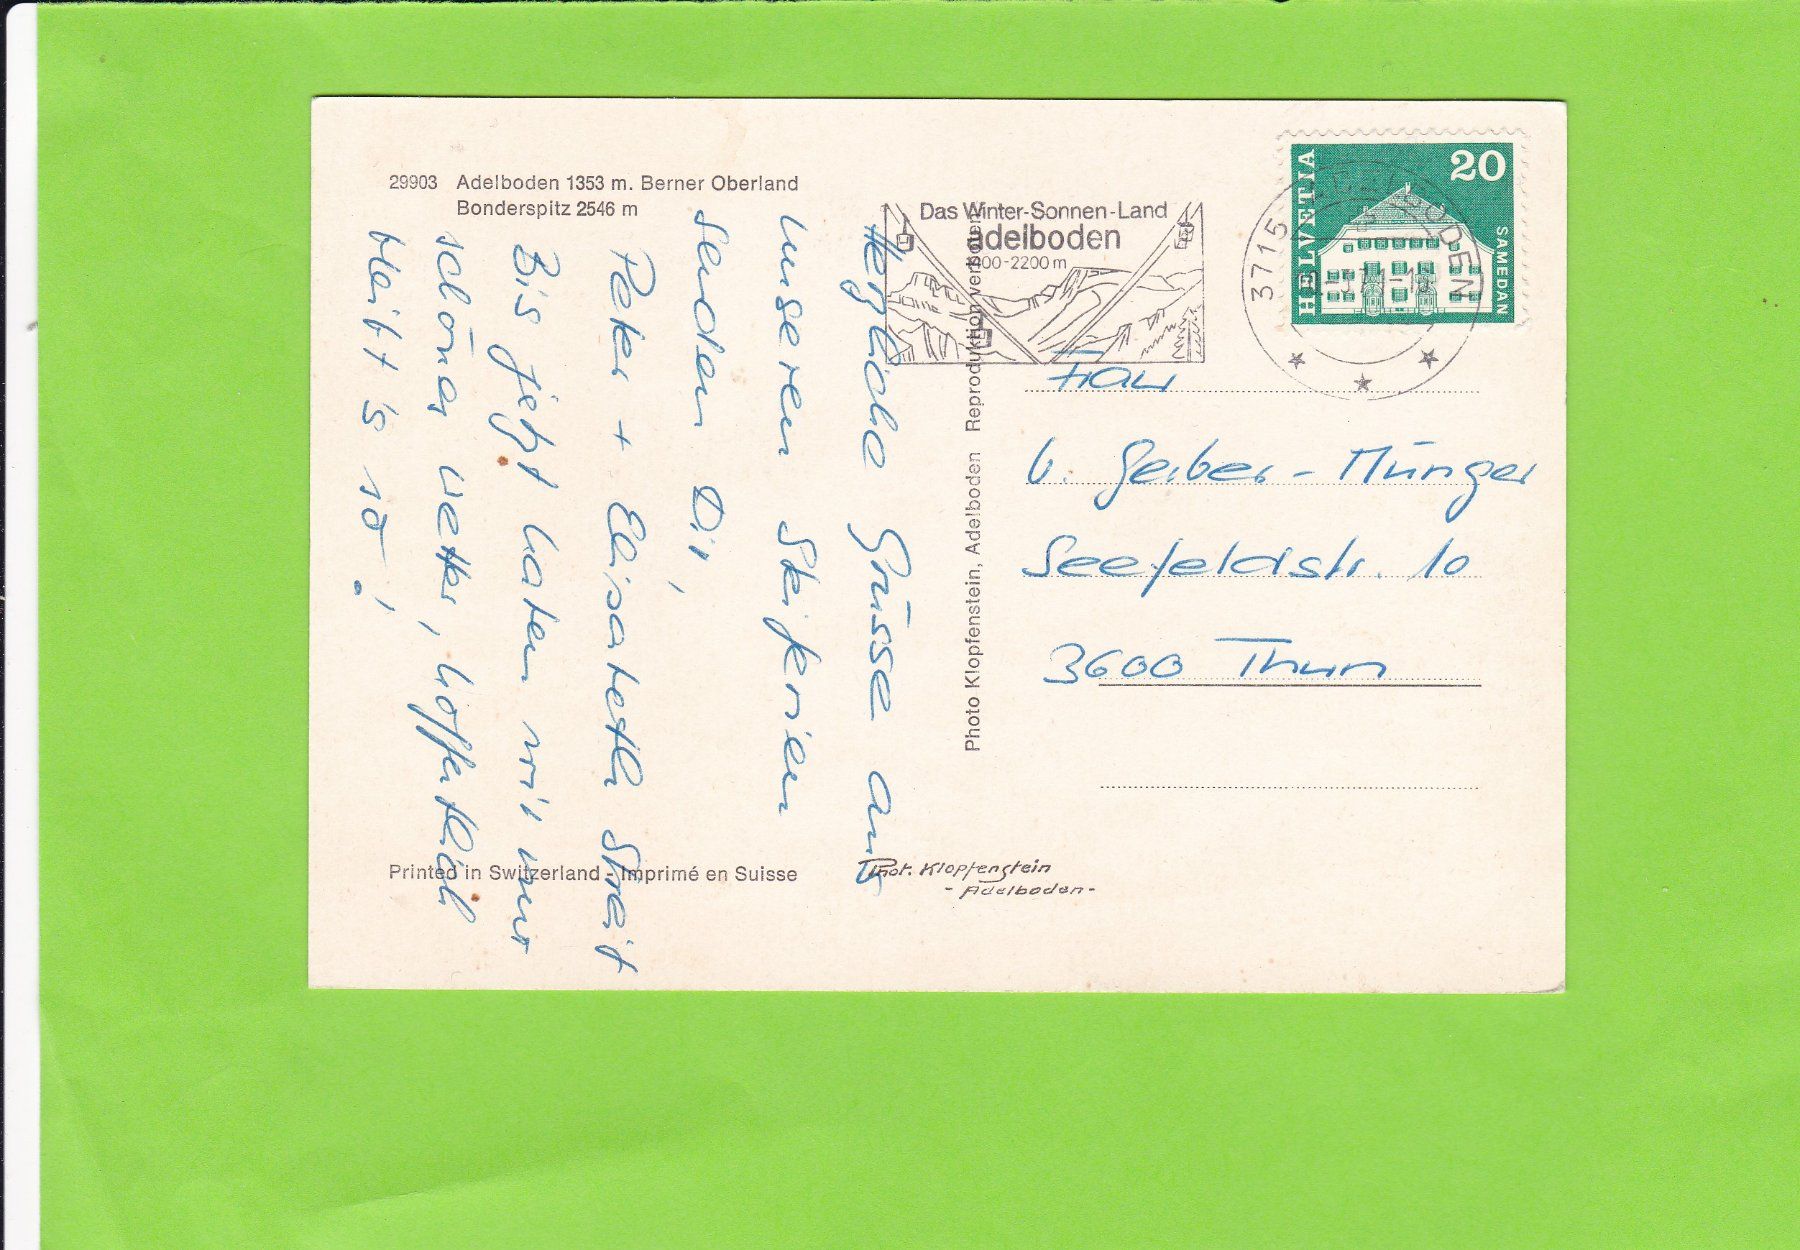 29903 Adelboden 1353 m. Berner Oberland
Bonderspitz 2546 m
Herzliche Grüsse aus
unseren Skiferien
senden Dir,
Peter + Elisabeth Streit
Bis jetzt hatten wir nur
schönes Wetter, hoffentlich
bleibt's so!
Printed in Switzerland - Imprimé en Suisse
Phot. Klopfenstein
- Adelboden -
Photo Klopfenstein, Adelboden Reproduktion verboten
Das Winter-Sonnen-Land
adelboden
1400-2200 m
3715 ADELBODEN
HELVETIA
20
SAMEDAN
Frau
Gerber-Münger
Seefeldstr. 10
3600 Thun